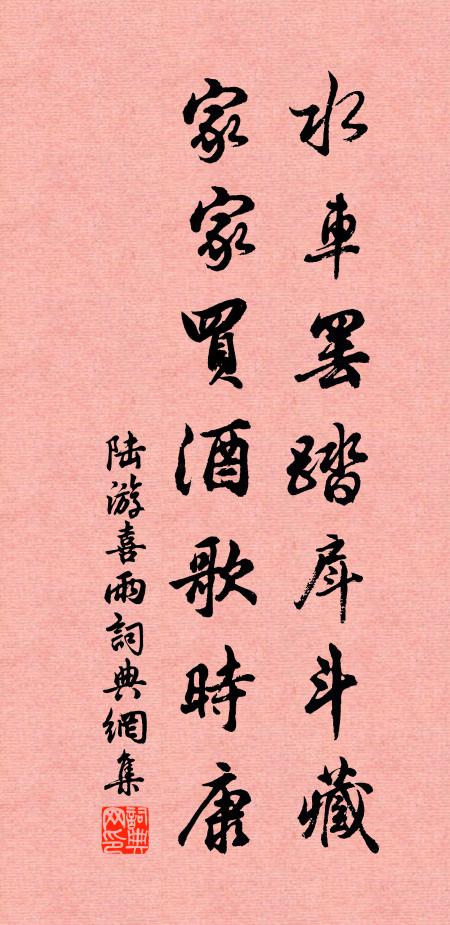 水車罢踏戽斗藏
家家買酒歌時康
陆游喜雨詞典網集
詞典网印